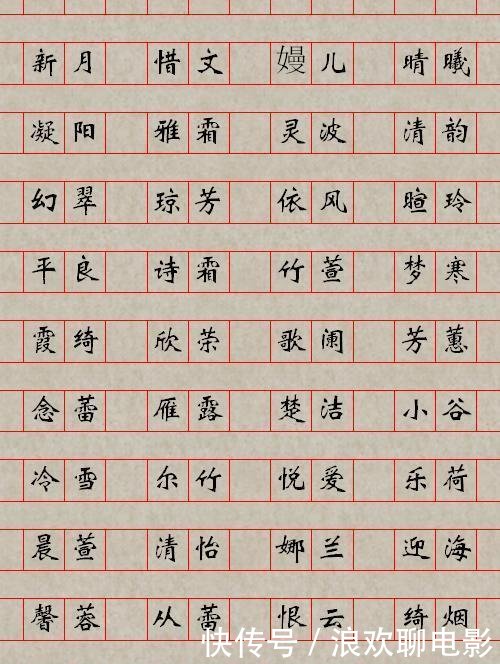 新月 惜文 嫚儿 晴曦
凝阳 雅霜 灵波 清韵
幻翠 琼芳 依风 暄玲
平良 诗霜 竹萱 梦寒
霞绮 欣荣 歌阑 芳蕙
念蕾 雁露 楚洁 小谷
冷雪 尔竹 悦爱 乐荷
晨萱 清怡 娜兰 迎海
馨蓉 从蕾 恨云 绮烟
快传号 / 浪欢聊电影